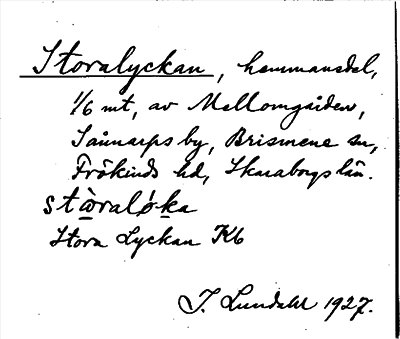 Storalyckan, hemmansdel,
1/6 mt, av Mellomgården,
Sännarps by, Brismene sn,
Frökinds hd, Skaraborgs län.
stòralø̀ka
Stora Lyckan Kb
J. Lundahl 1927.